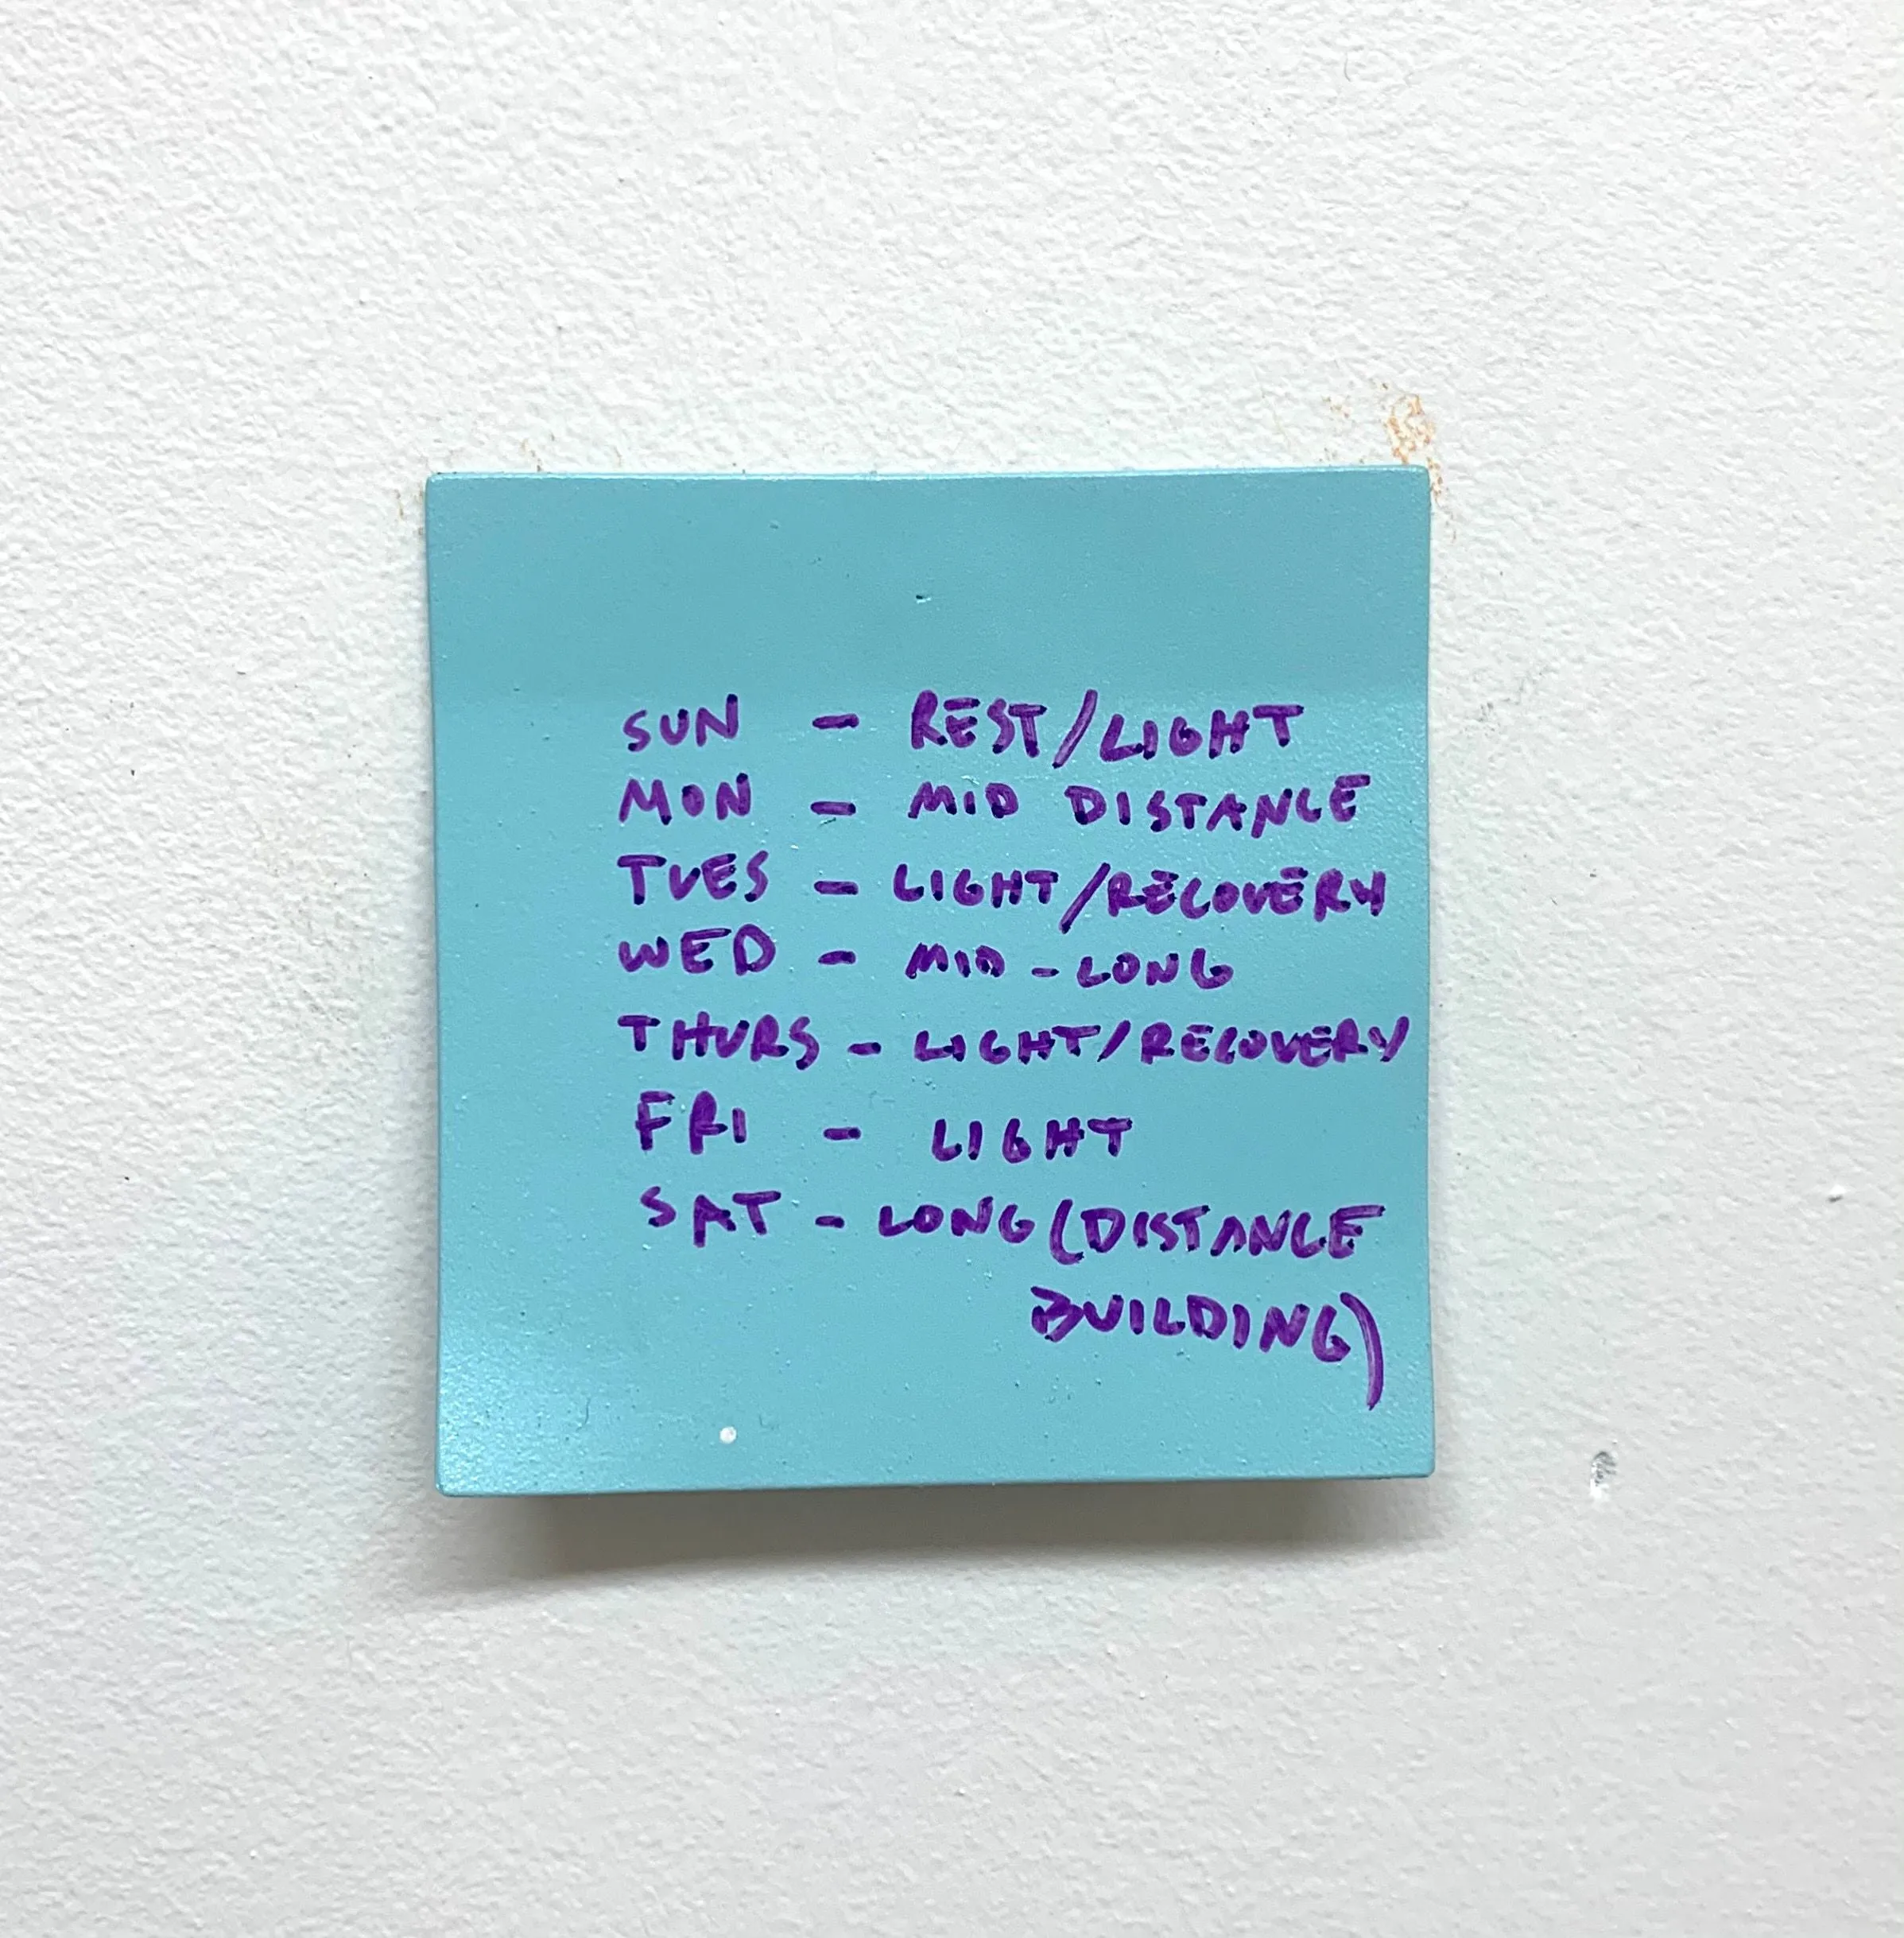 SUN - REST/LIGHT
MON - MID DISTANCE
TUES - LIGHT/RECOVERY
WED - MID-LONG
THURS - LIGHT/RECOVERY
FRI - LIGHT
SAT - LONG (DISTANCE
BUILDING)